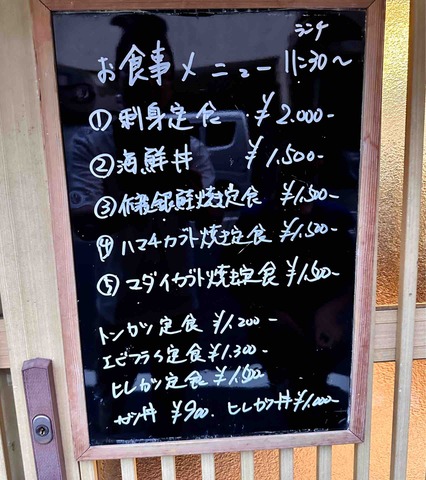 ランチ
お食事メニュー 11:30〜
① 刺身定食 ¥2.000-
② 海鮮丼 ¥1.500-
③ 銀鮭焼定食 ¥1.500-
④ ハマチカブト焼定食 ¥1.500-
⑤ マダイカブト焼定食 ¥1.500-
トンカツ定食 ¥1.200-
エビフライ定食 ¥1.300-
ヒレカツ定食 ¥1.500
カツ丼 ¥900. ヒレカツ丼 ¥1.000